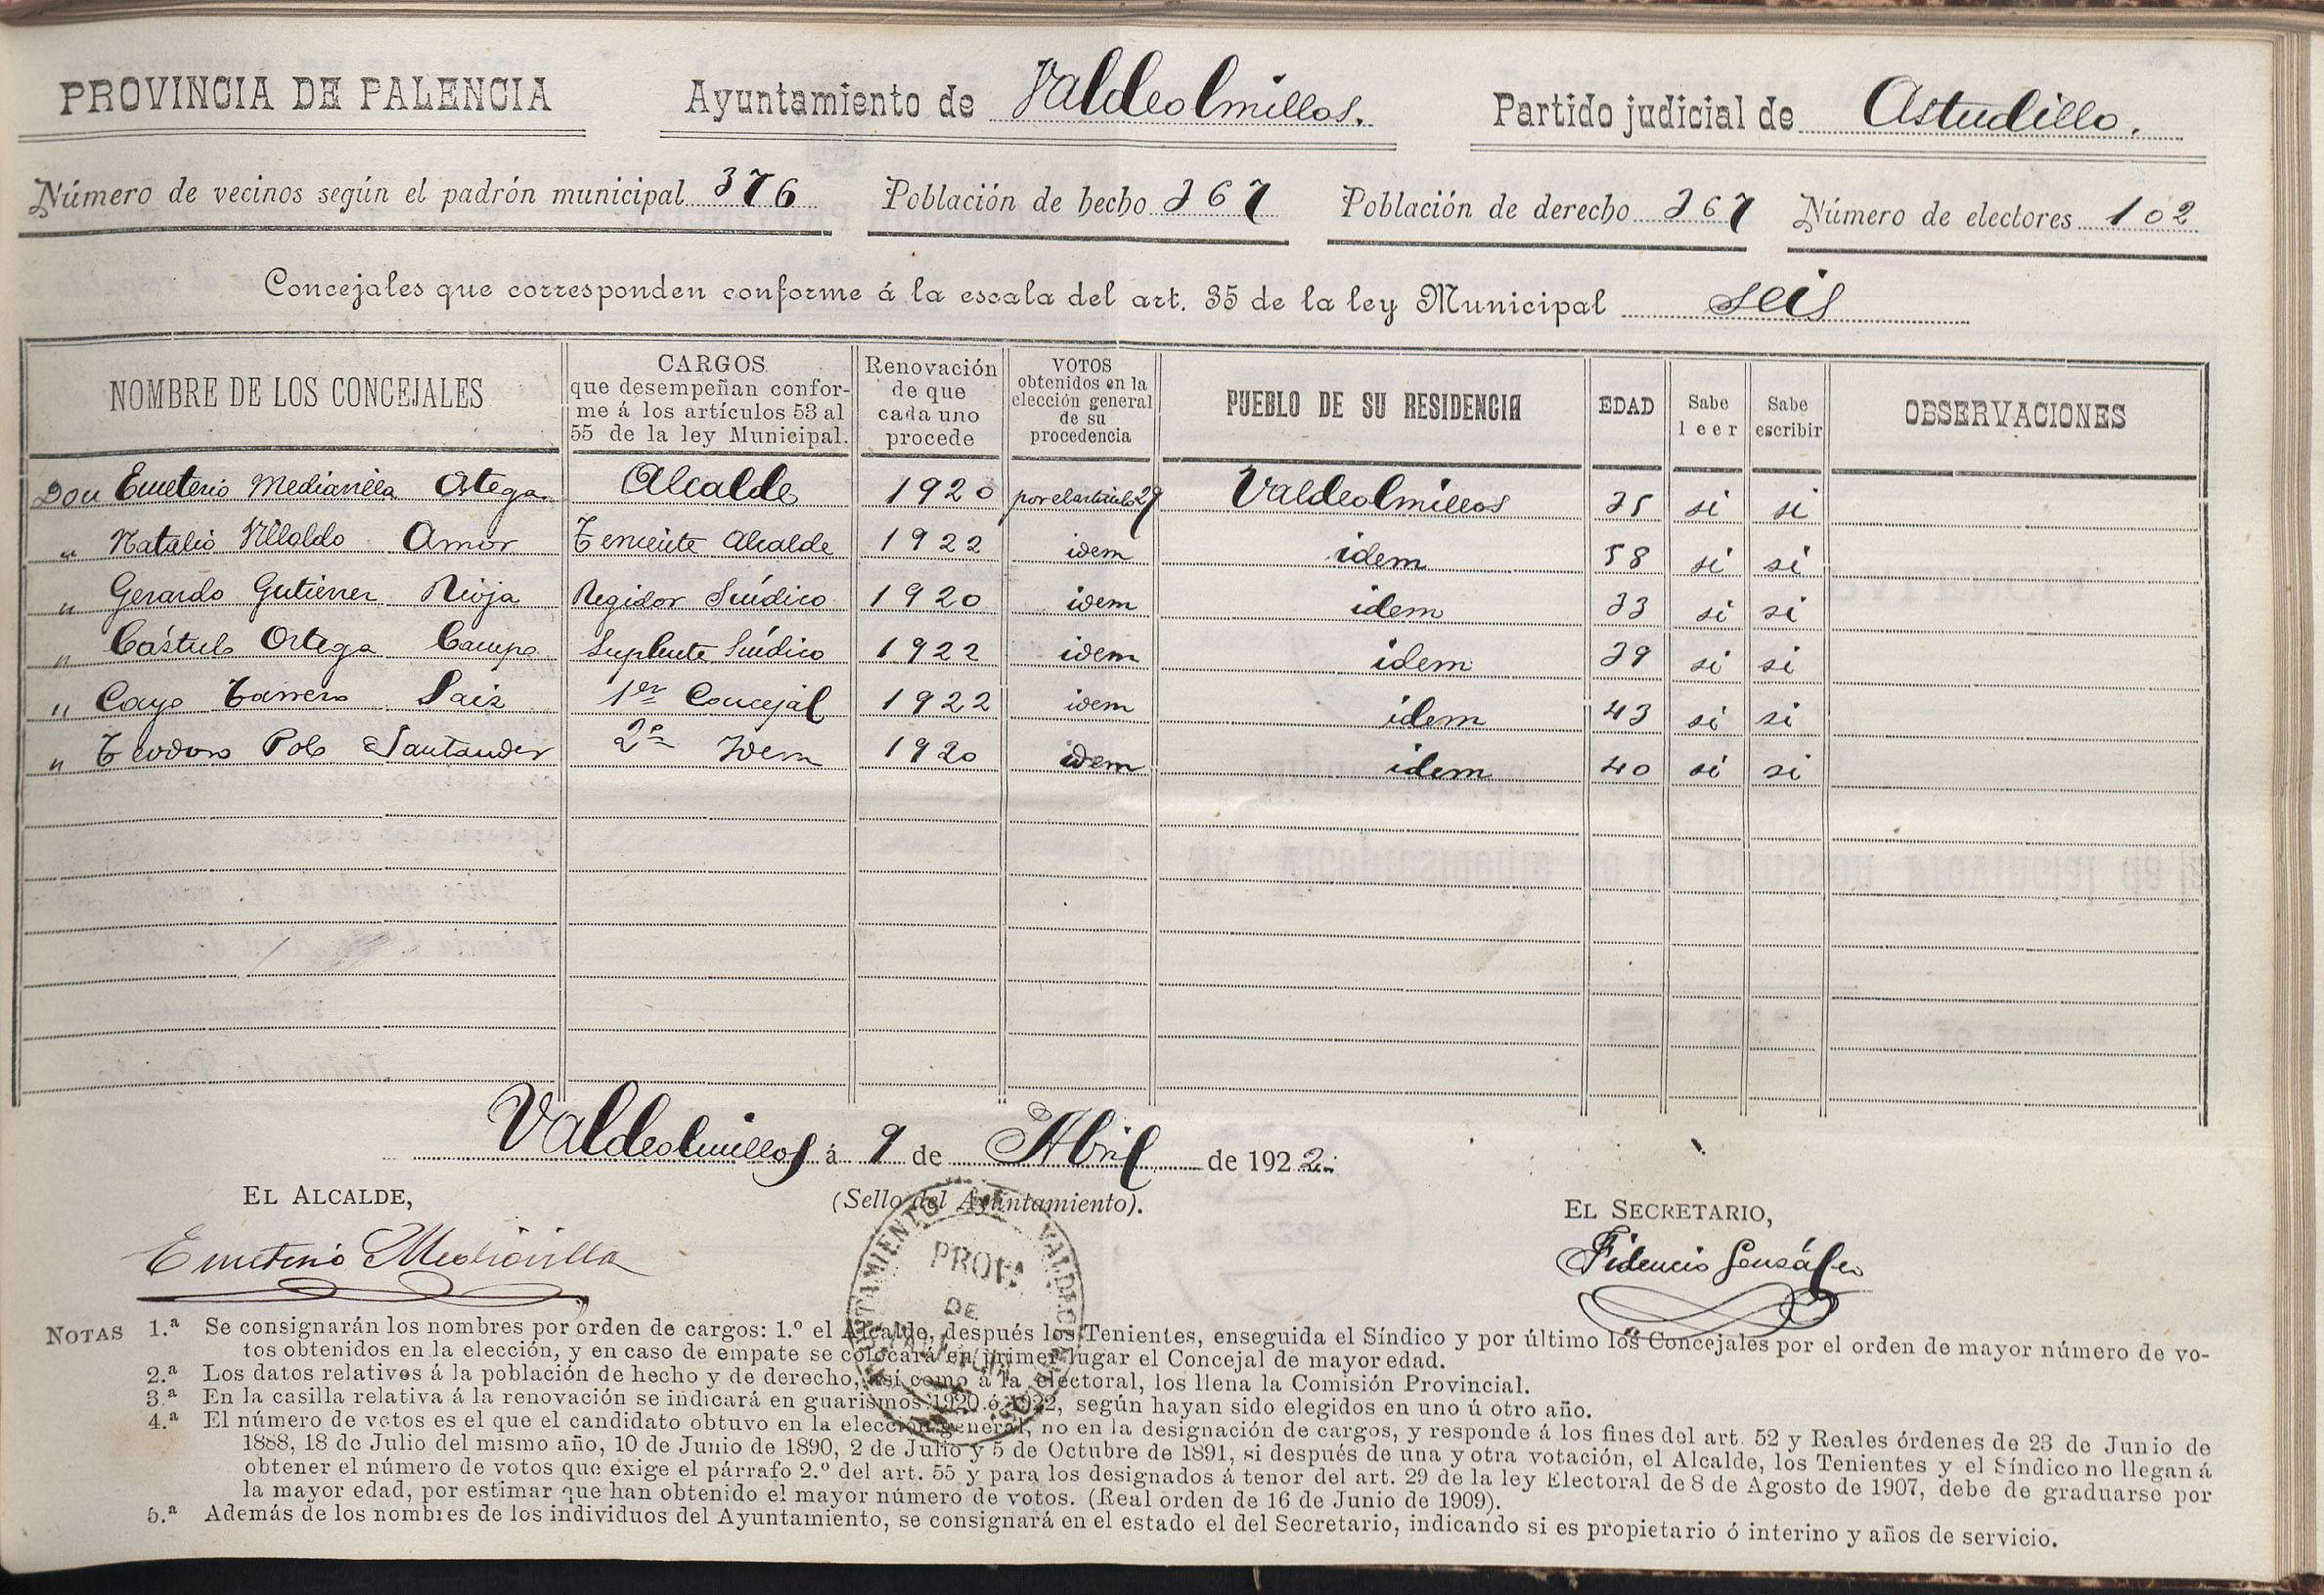 PROVINCIA DE PALENCIA Ayuntamiento de Valdeolmillos. Partido judicial de Astudillo.
Número de vecinos según el padrón municipal 376 Población de hecho 367 Población de derecho 367 Número de electores 102
Concejales que corresponden conforme á la escala del art. 35 de la ley Municipal seis
NOMBRE DE LOS CONCEJALES
CARGOS
que desempeñan confor-
me á los artículos 53 al
55 de la ley Municipal.
Renovación
de que
cada uno
procede
VOTOS
obtenidos en la
elección general
de su
procedencia
PUEBLO DE SU RESIDENCIA
EDAD
Sabe
leer
Sabe
escribir
OBSERVACIONES
Don Emeterio Mediavilla Ortega Alcalde 1920 por el artículo 29 Valdeolmillos 35 si si
" Natalio Villoldo Amor Teniente Alcalde 1922 idem idem 58 si si
" Gerardo Gutierrez Rioja Regidor Síndico 1920 idem idem 33 si si
" Cástulo Ortega Campo Suplente Síndico 1922 idem idem 39 si si
" Cayo Tarrero Saiz 1er Concejal 1922 idem idem 43 si si
" Teodoro Polo Santander 2º Idem 1920 idem idem 40 si si
Valdeolmillos á 9 de Abril de 1922.
EL ALCALDE,
(Sello del Ayuntamiento).
EL SECRETARIO,
Emeterio Mediavilla
Fidencio González
AYUNTAMIENTO DE VALDEOLMILLOS
PROVA
DE
NOTAS 1.ª Se consignarán los nombres por orden de cargos: 1.º el Alcalde, después los Tenientes, enseguida el Síndico y por último los Concejales por el orden de mayor número de vo-
tos obtenidos en la elección, y en caso de empate se colocará en primer lugar el Concejal de mayor edad.
2.ª Los datos relativos á la población de hecho y de derecho, así como á la electoral, los llena la Comisión Provincial.
3.ª En la casilla relativa á la renovación se indicará en guarismos 1920 ó 1922, según hayan sido elegidos en uno ú otro año.
4.ª El número de votos es el que el candidato obtuvo en la elección general, no en la designación de cargos, y responde á los fines del art. 52 y Reales órdenes de 23 de Junio de
1888, 18 de Julio del mismo año, 10 de Junio de 1890, 2 de Julio y 5 de Octubre de 1891, si después de una y otra votación, el Alcalde, los Tenientes y el Síndico no llegan á
obtener el número de votos que exige el párrafo 2.º del art. 55 y para los designados á tenor del art. 29 de la ley Electoral de 8 de Agosto de 1907, debe de graduarse por
la mayor edad, por estimar que han obtenido el mayor número de votos. (Real orden de 16 de Junio de 1909).
5.ª Además de los nombres de los individuos del Ayuntamiento, se consignará en el estado el del Secretario, indicando si es propietario ó interino y años de servicio.